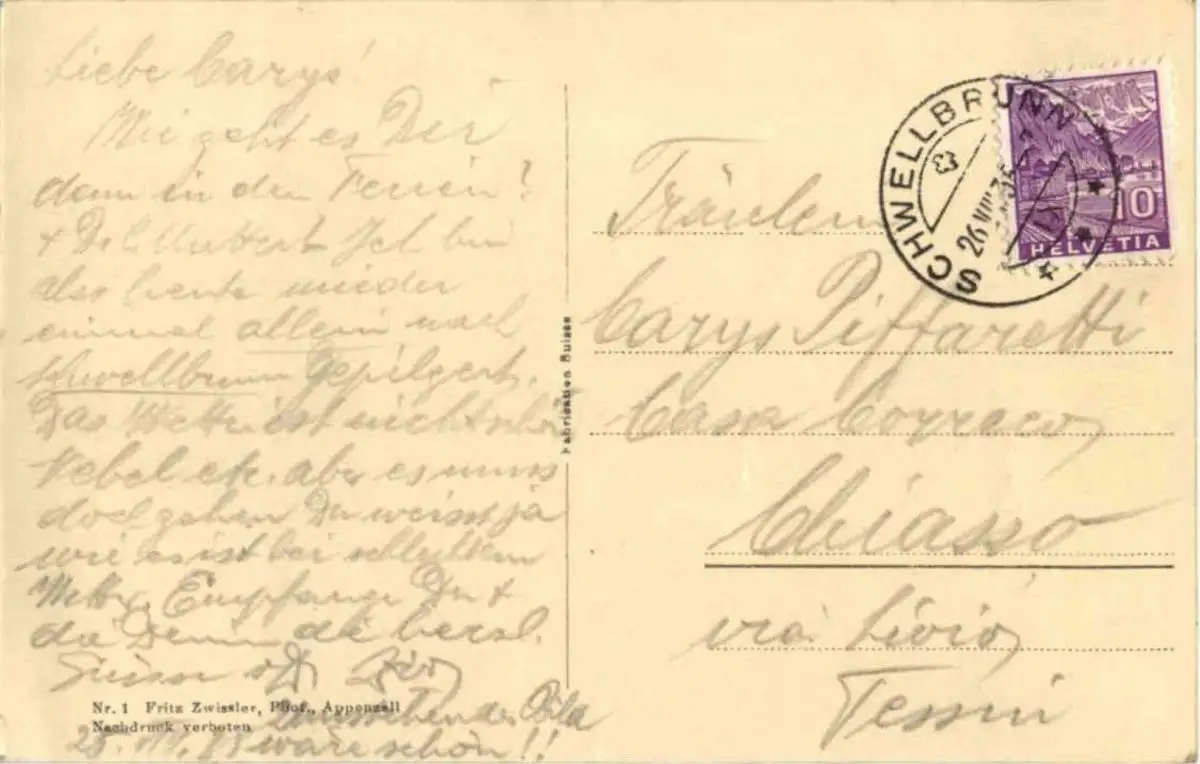 Liebe Carys!
Wie geht es Dir
denn in den Ferien?
Ich bin
also heute wieder
einmal allein nach
Schwellbrunn gepilgert.
Das Wetter ist nicht schön
Nebel etc. aber es muss
doch gehen Du weisst ja
wie es ist bei schlechtem
Wetter. Empfange Du +
die herzl.
Grüsse
Nr. 1 Fritz Zwissler, Phot., Appenzell
Nachdruck verboten
wäre schön!!
Fabrication Suisse
SCHWELLBRUNN
26.VIII.35
10
HELVETIA
Fräulein
Carys Piffaretti
Casa
Chiasso
via Livio
Tessin